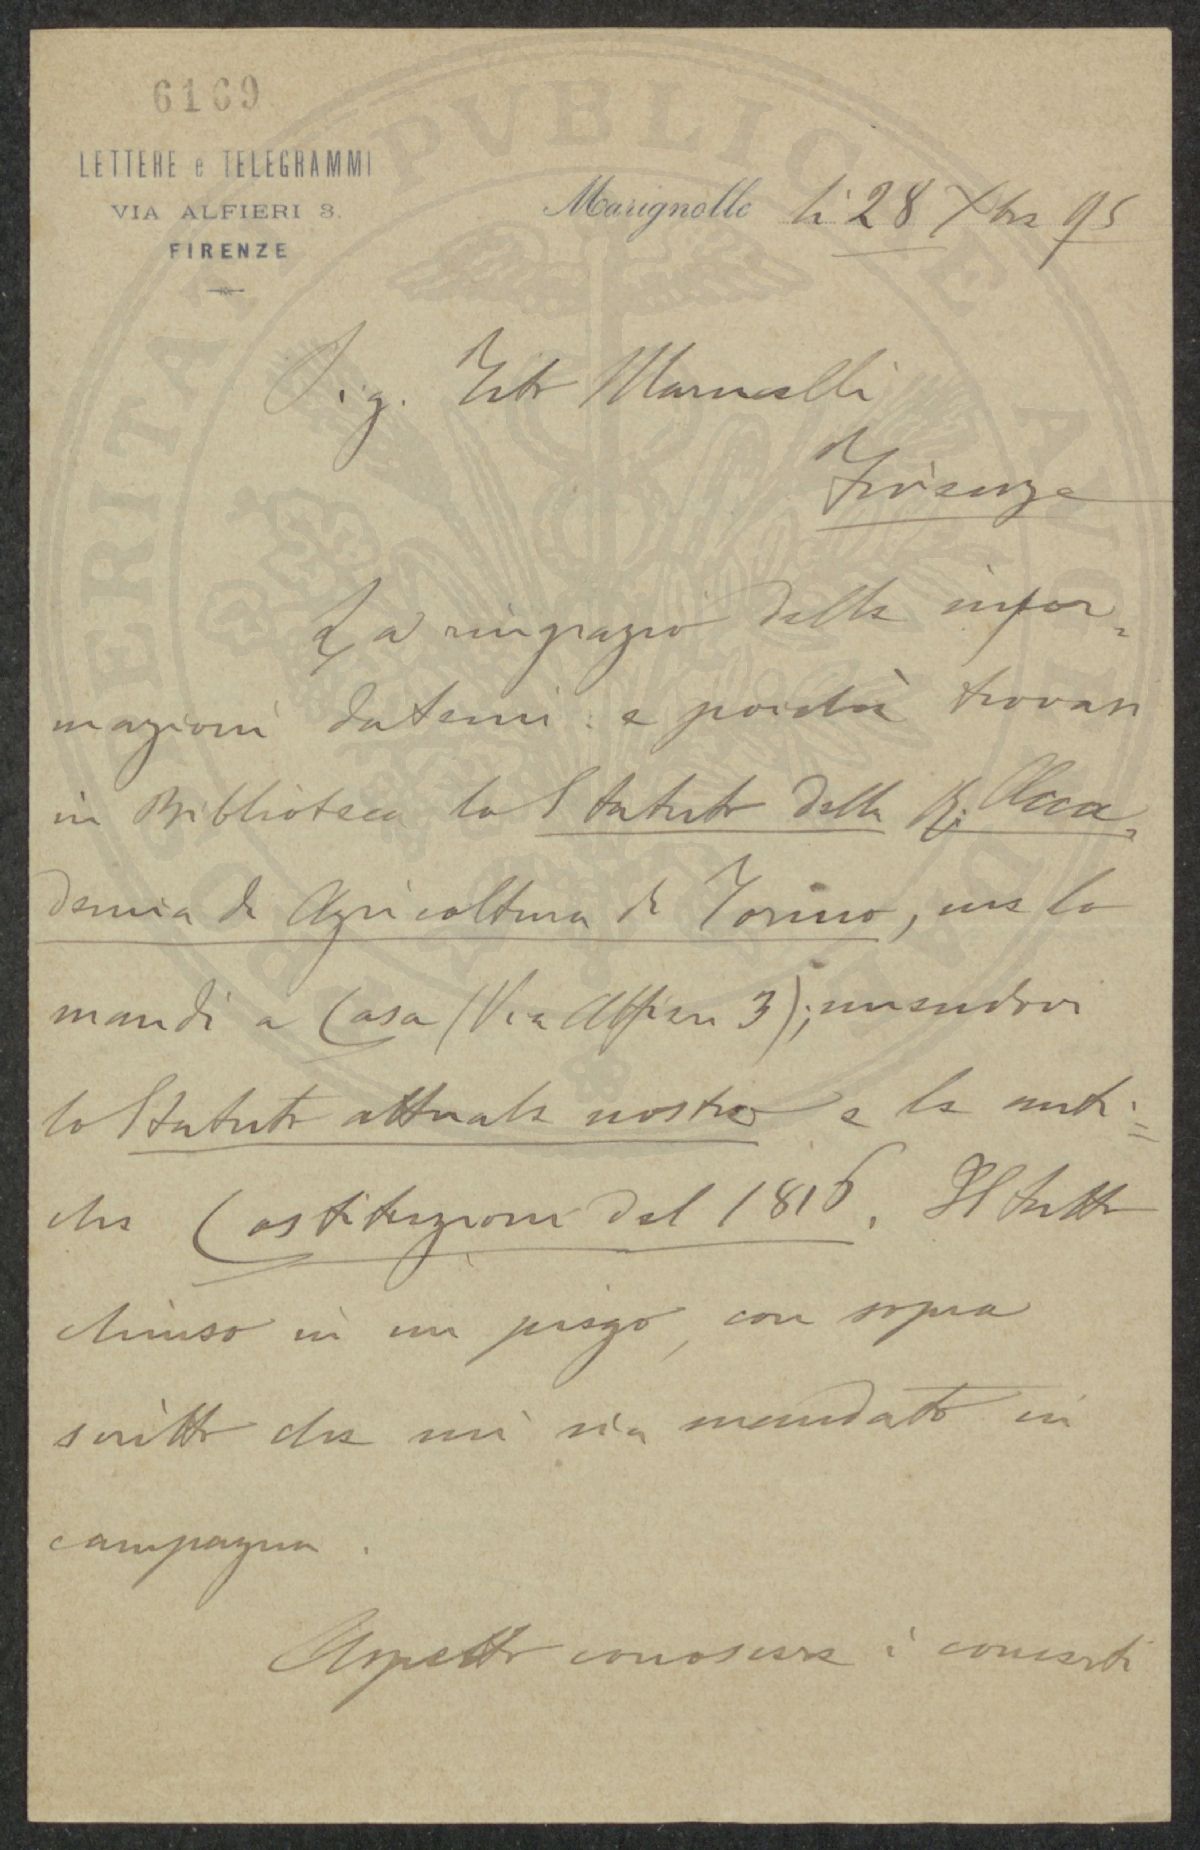 6169
LETTERE e TELEGRAMMI
VIA ALFIERI 3.
FIRENZE
Marignolle li 28 Xbre 95
Sig. Tito Marucelli
Firenze
La ringrazio delle infor=
mazioni datemi: e poichè trovasi
in Biblioteca lo Statuto della R. Acca=
demia di Agricoltura di Torino, me lo
mandi a Casa (Via Alfieri 3); unendovi
lo Statuto attuale nostro e le anti=
che Costituzioni del 1816. Il tutto
chiuso in un piego, con sopra
scritto che mi sia mandato in
campagna.
Aspetto conoscere i concerti